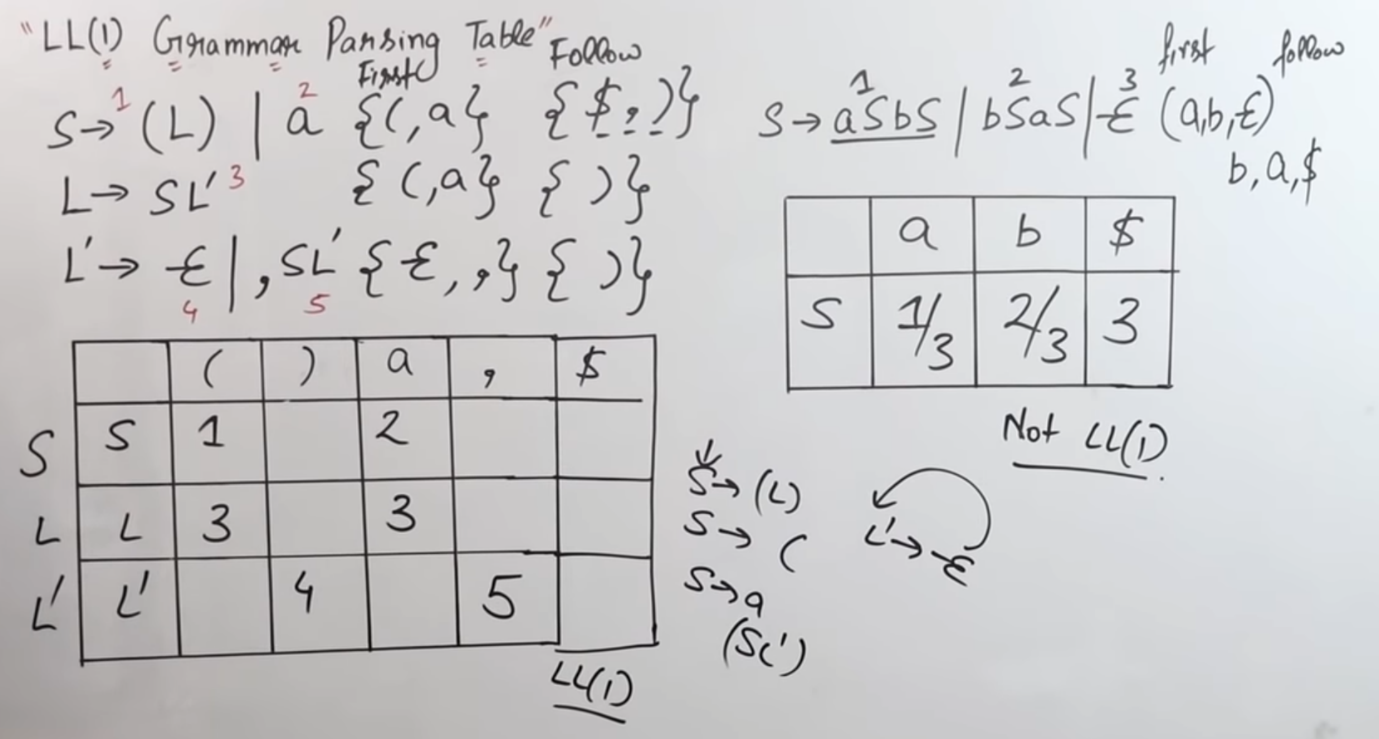 "LL(1) Grammar Parsing Table"
First Follow
S→ (L) | a {(,a} {$,,,)}
1 2
L→ SL' {(,a} {)}
3
L'→ Ɛ | ,SL' {Ɛ,,} {)}
4 5
( ) a , $
S S 1 2
L L 3 3
L' L' 4 5
LL(1)
S→ (L)
S→ (
S→a
(SL')
L'→Ɛ
first follow
1 2 3
S→ aSbS | bSaS | Ɛ (a,b,Ɛ)
b,a,$
a b $
S 1/3 2/3 3
Not LL(1).